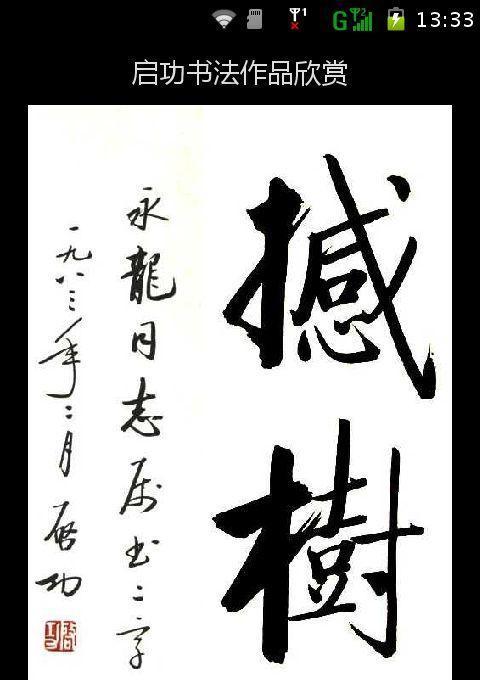 13:33
启功书法作品欣赏
撼樹
永龍同志属书二字
一九八三年二月启功
启功